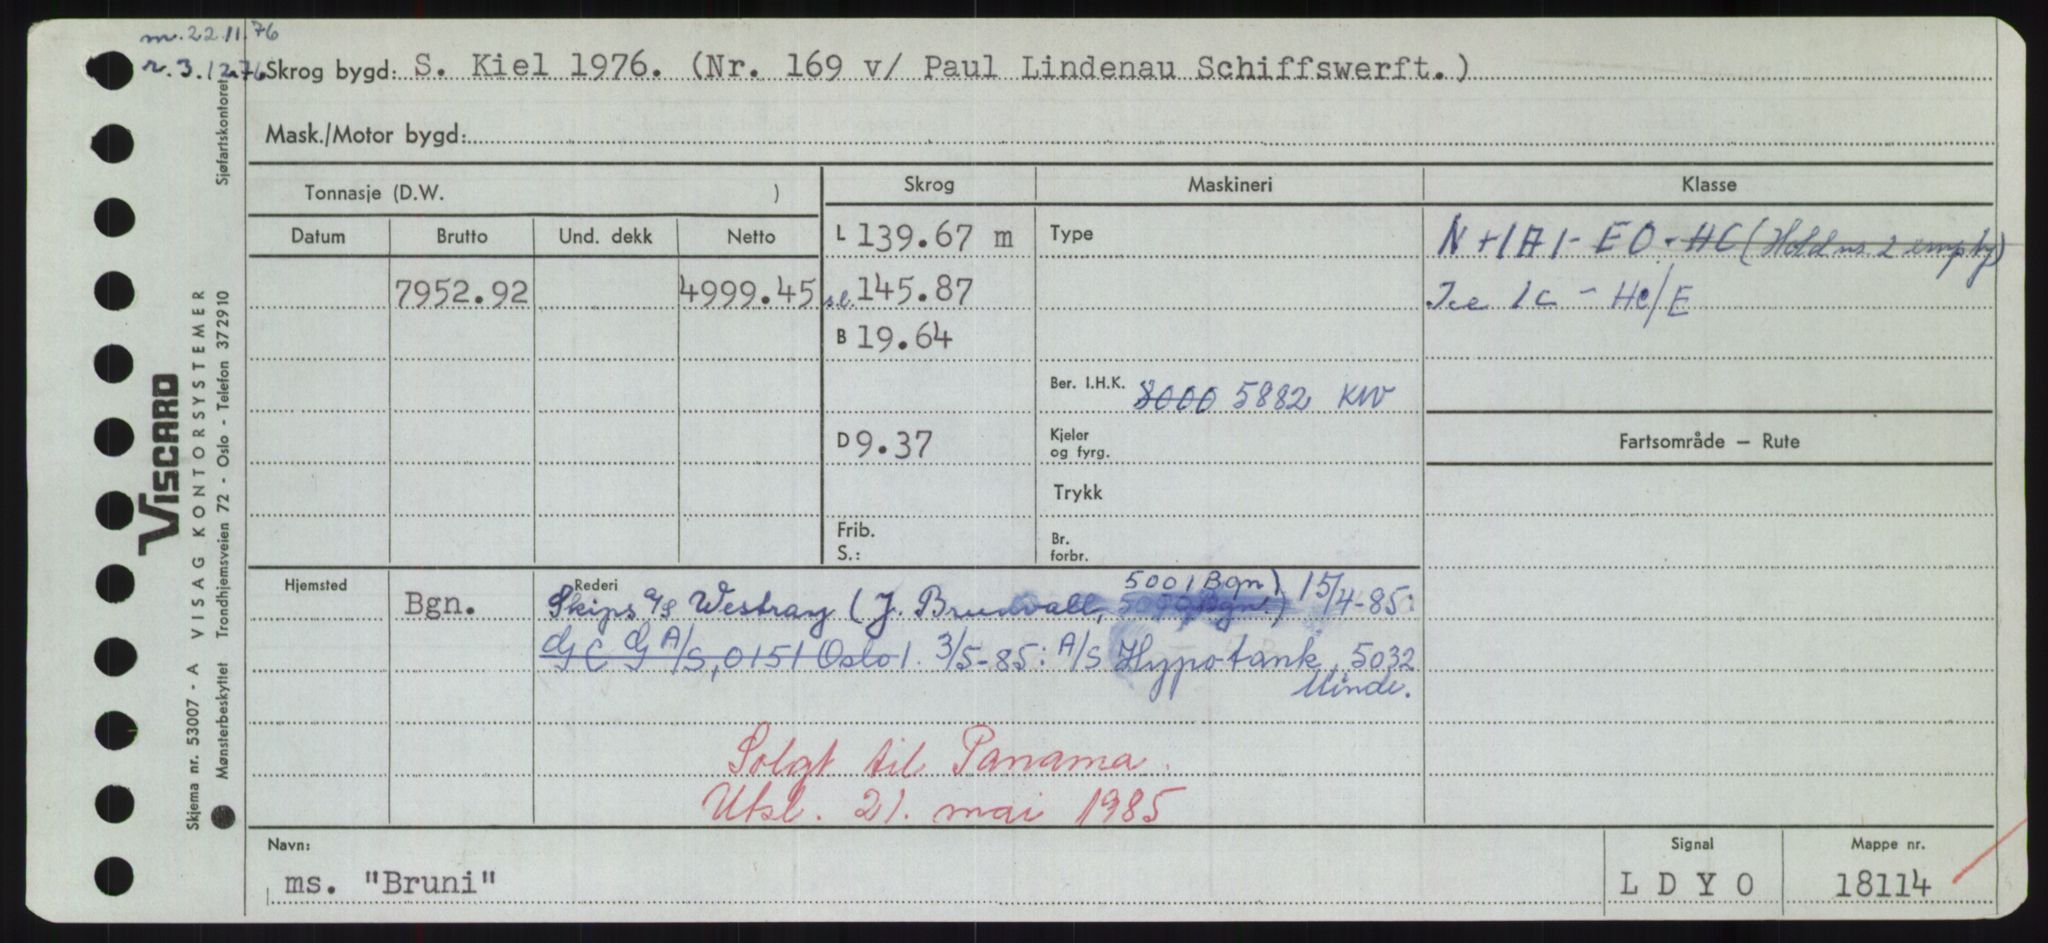 m. 22.11.76
r. 3.12.76
Skrog bygd: S. Kiel 1976. (Nr. 169 v/ Paul Lindenau Schiffswerft.)
Mask./Motor bygd:
Tonnasje (D.W. )
Skrog
Maskineri
Klasse
Datum
Brutto
Und. dekk
Netto
7952.92
4999.45
L 139.67 m
s.l. 145.87
B 19.64
D 9.37
Frib.
S.:
Type
Ber. I.H.K. 8000 5882 KW
Kjeler
og fyrg.
Trykk
Br.
forbr.
N +1A1- EO - HC (Hold no. 2 empty)
Ice 1C - HC/E
Fartsområde — Rute
Hjemsted
Bgn.
Rederi
Skips A/S Westray (J. Brunvall, 5001 Bgn.) 15/4-85:
GCG A/S, 0151 Oslo 1. 3/5-85: A/S Hypotank, 5032
Minde.
Solgt til Panama.
Utsl. 21. mai 1985
Navn:
ms. "Bruni"
Signal
LDYO
Mappe nr.
18114
Viscard
VISAG KONTORSYSTEMER
Skjema nr. 53007 - A
Mønsterbeskyttet
Trondhjemsveien 72 - Oslo - Telefon 372910
Sjøfartskontoret